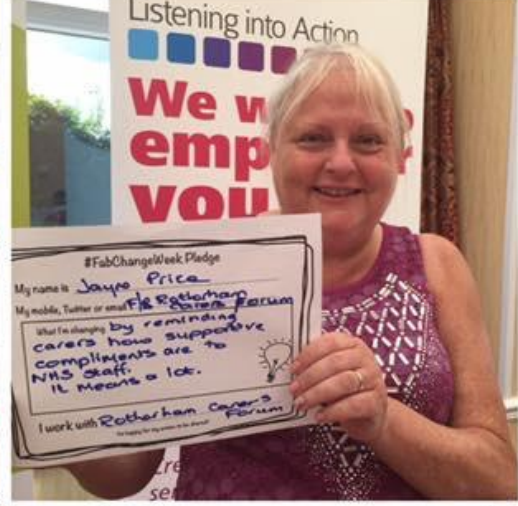 Listening into Action
We w
emp
you
#FabChangeWeek Pledge
My name is Jayne Price
My mobile, Twitter or email F/B Rotherham
Carers Forum
What I'm changing by reminding
carers how supportive
compliments are to
NHS staff.
It means a lot.
I work with Rotherham Carers
Forum
I'm happy for my action to be shared!
Cre
ser